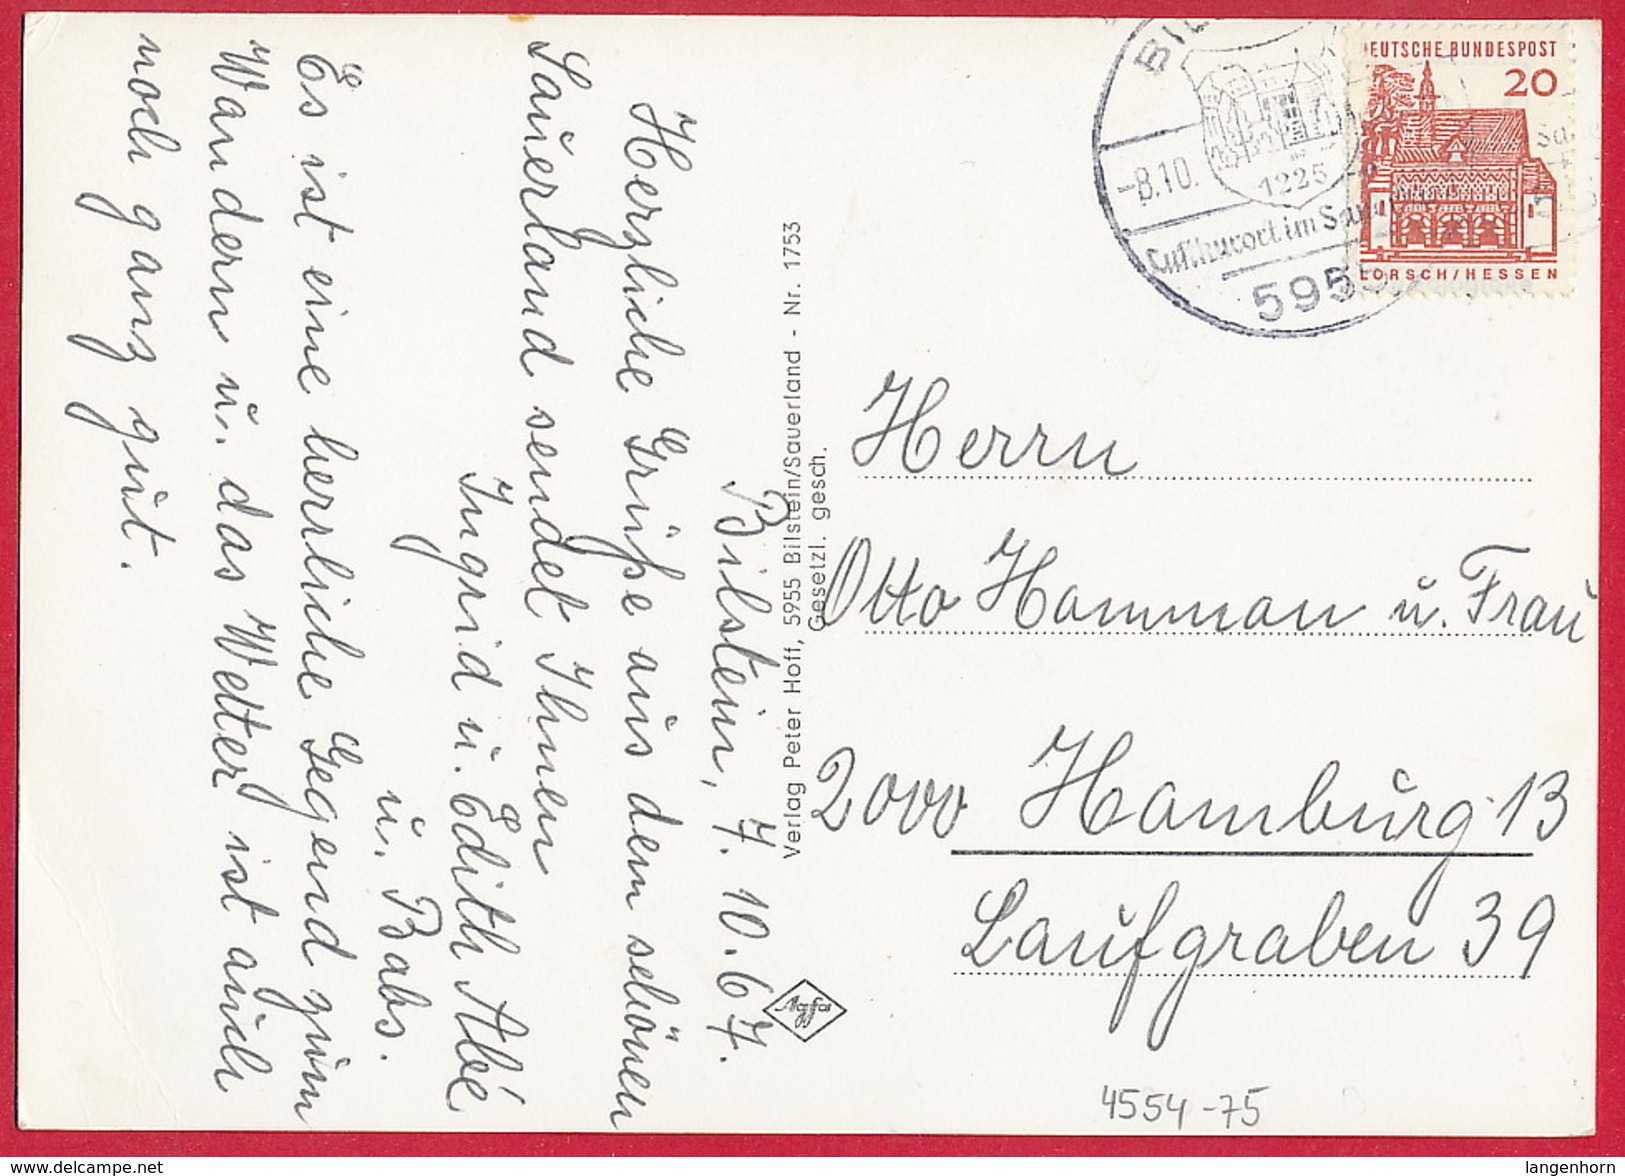 Bilstein, 7. 10. 67.
Herzliche Grüße aus dem schönen
Sauerland sendet Ihnen
Ingrid u. Edith Abé
u. Babs.
Es ist eine herrliche Gegend zum
Wandern u. das Wetter ist auch
noch ganz gut.
Verlag Peter Hoff, 5955 Bilstein/Sauerland - Nr. 1753
Gesetzl. gesch.
Agfa
-8.10.
1225
Luftkurort im
DEUTSCHE BUNDESPOST
20
LORSCH/HESSEN
Herrn
Otto Hamman u. Frau
2000 Hamburg 13
Laufgraben 39
4554-75
www.delcampe.net
langenhorn